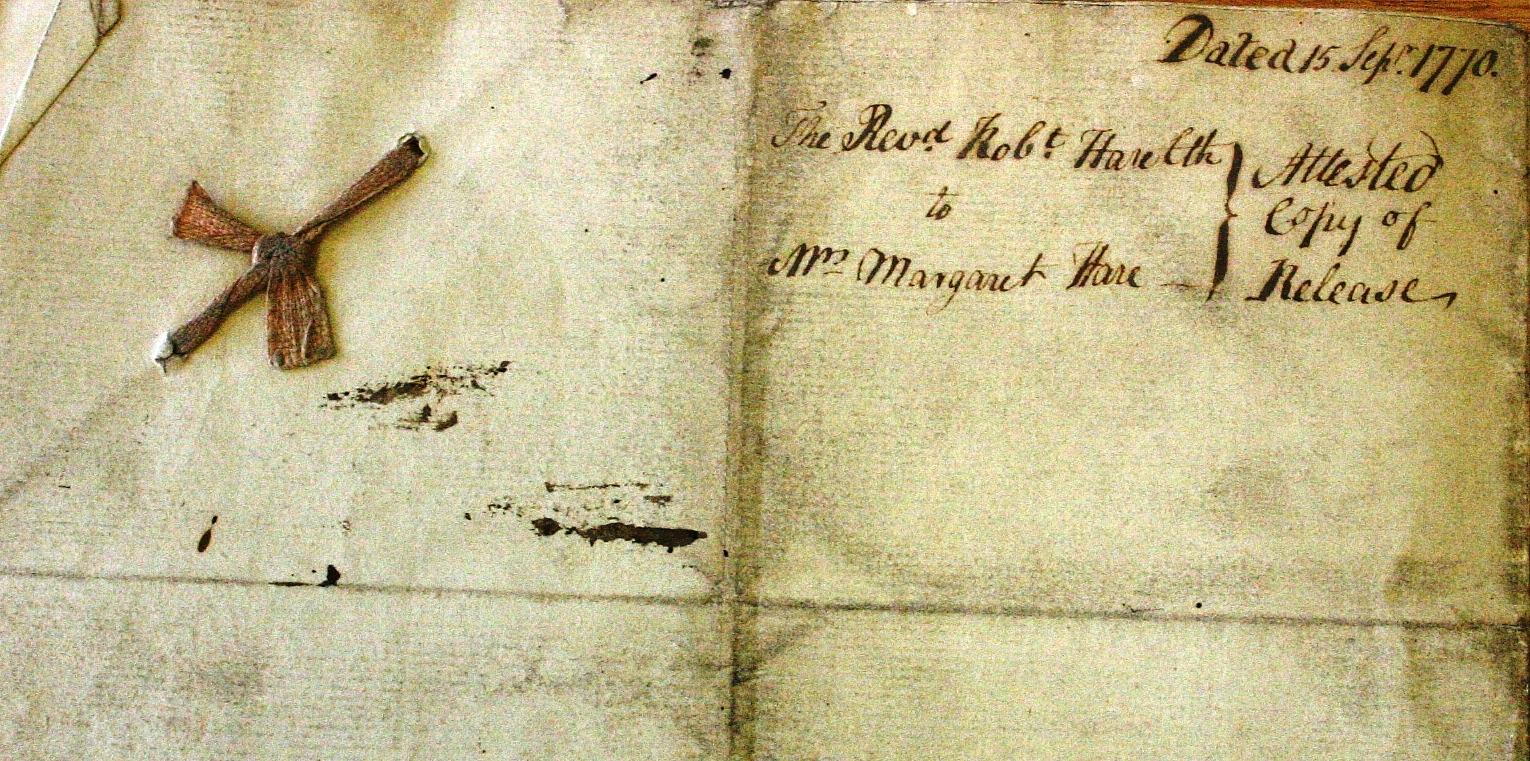 Dated 15 Sepr. 1770.
The Revd. Robt. Hare Clk
to
Mrs Margaret Hare
Attested
Copy of
Release